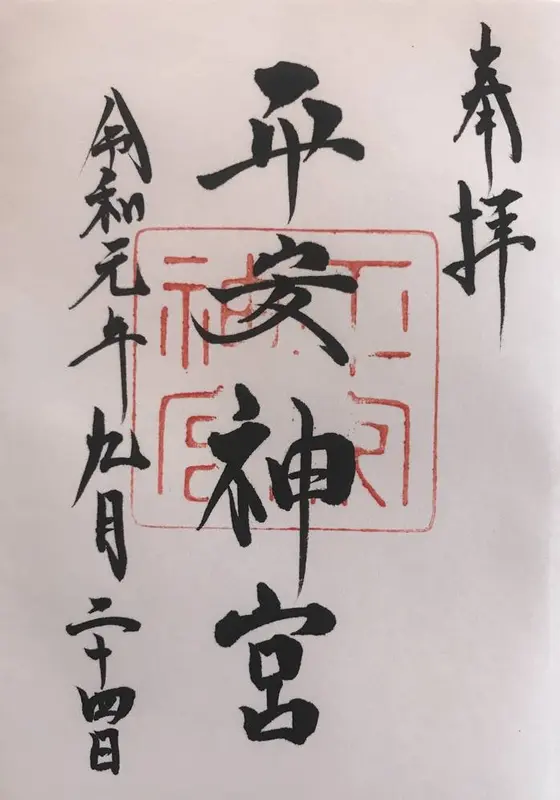 奉拝
平安神宮
令和元年九月二十四日
平安神宮